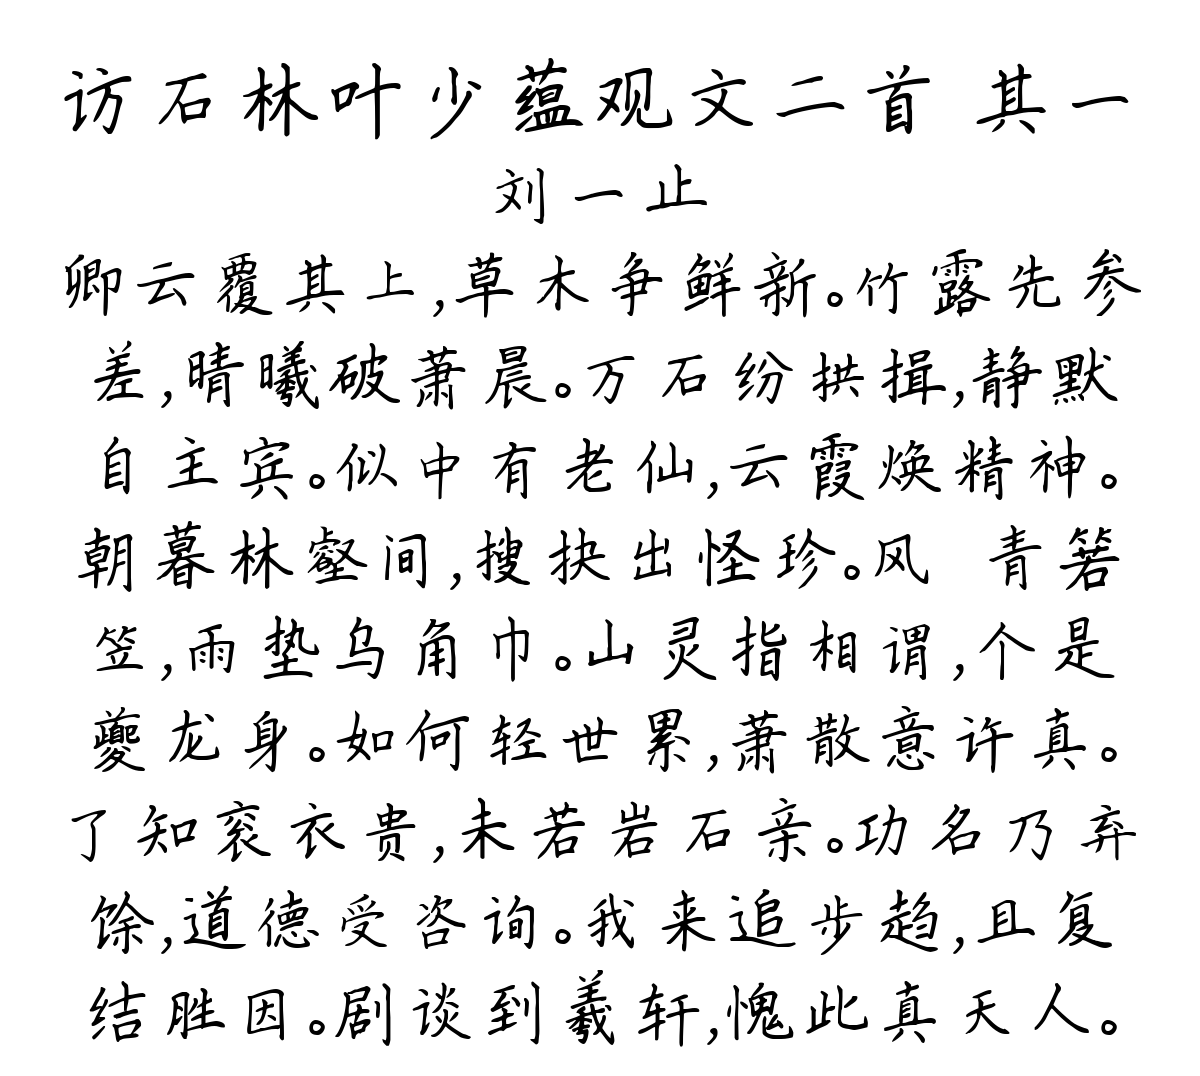 访石林叶少蕴观文二首 其一
刘一止
卿云覆其上,草木争鲜新。竹露先参
差,晴曦破萧晨。万石纷拱揖,静默
自主宾。似中有老仙,云霞焕精神。
朝暮林壑间,搜抉出怪珍。风 青箬
笠,雨垫乌角巾。山灵指相谓,个是
夔龙身。如何轻世累,萧散意许真。
了知衮衣贵,未若岩石亲。功名乃弃
馀,道德受咨询。我来追步趋,且复
结胜因。剧谈到羲轩,愧此真天人。